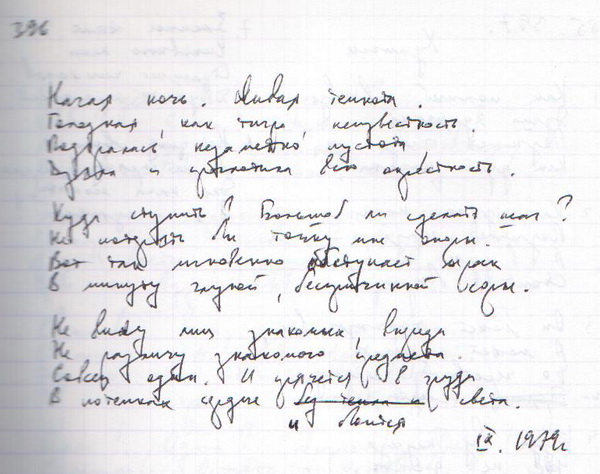 396
Начал ночь. Живая темнота.
Голодная, как тигр, неизвестность.
Подкралась незаметно, пустота
Вдруг и проглотила всю окрестность.
Куда ступить? Большой ли сделать шаг?
Не потерять бы точку мне опоры.
Вот так мгновенно обступает мрак
В минуту глупой, беспричинной ссоры.
Не вижу лиц знакомых впереди
Не различу знакомого предмета.
Совсем один. И прячется в груди
В потемках сердце без тепла и света.
и боится
IX. 1979г